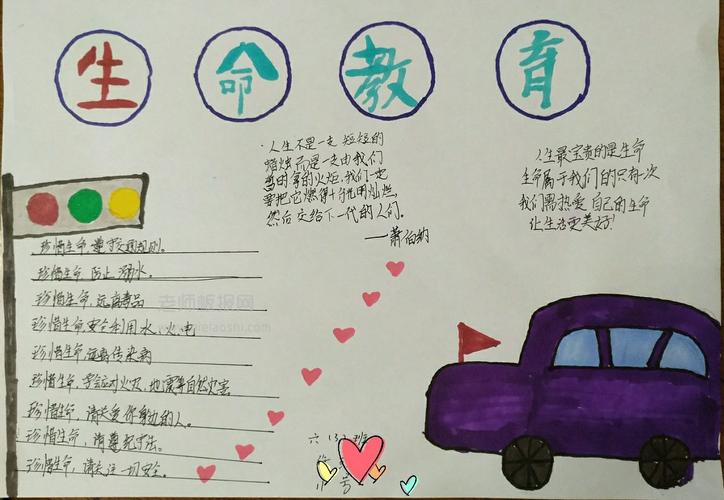 生命教育
人生不是一支短短的
蜡烛而是一支由我们
暂时拿的火炬,我们一定
要把它燃得十分光明灿烂,
然后交给下一代的人们。
——萧伯纳
人生最宝贵的是生命
生命属于我们的只有一次
我们需热爱自己的生命
让生活更美好!
珍惜生命,遵守交通规则。
珍惜生命,防止溺水。
珍惜生命,远离毒品
珍惜生命,安全利用水、火、电
珍惜生命,远离传染病
珍惜生命,学会应对火灾、地震等自然灾害
珍惜生命,请关爱你身边的人。
珍惜生命,请遵纪守法。
珍惜生命,请关注一切安全。
老师板报网
六(3)班
号